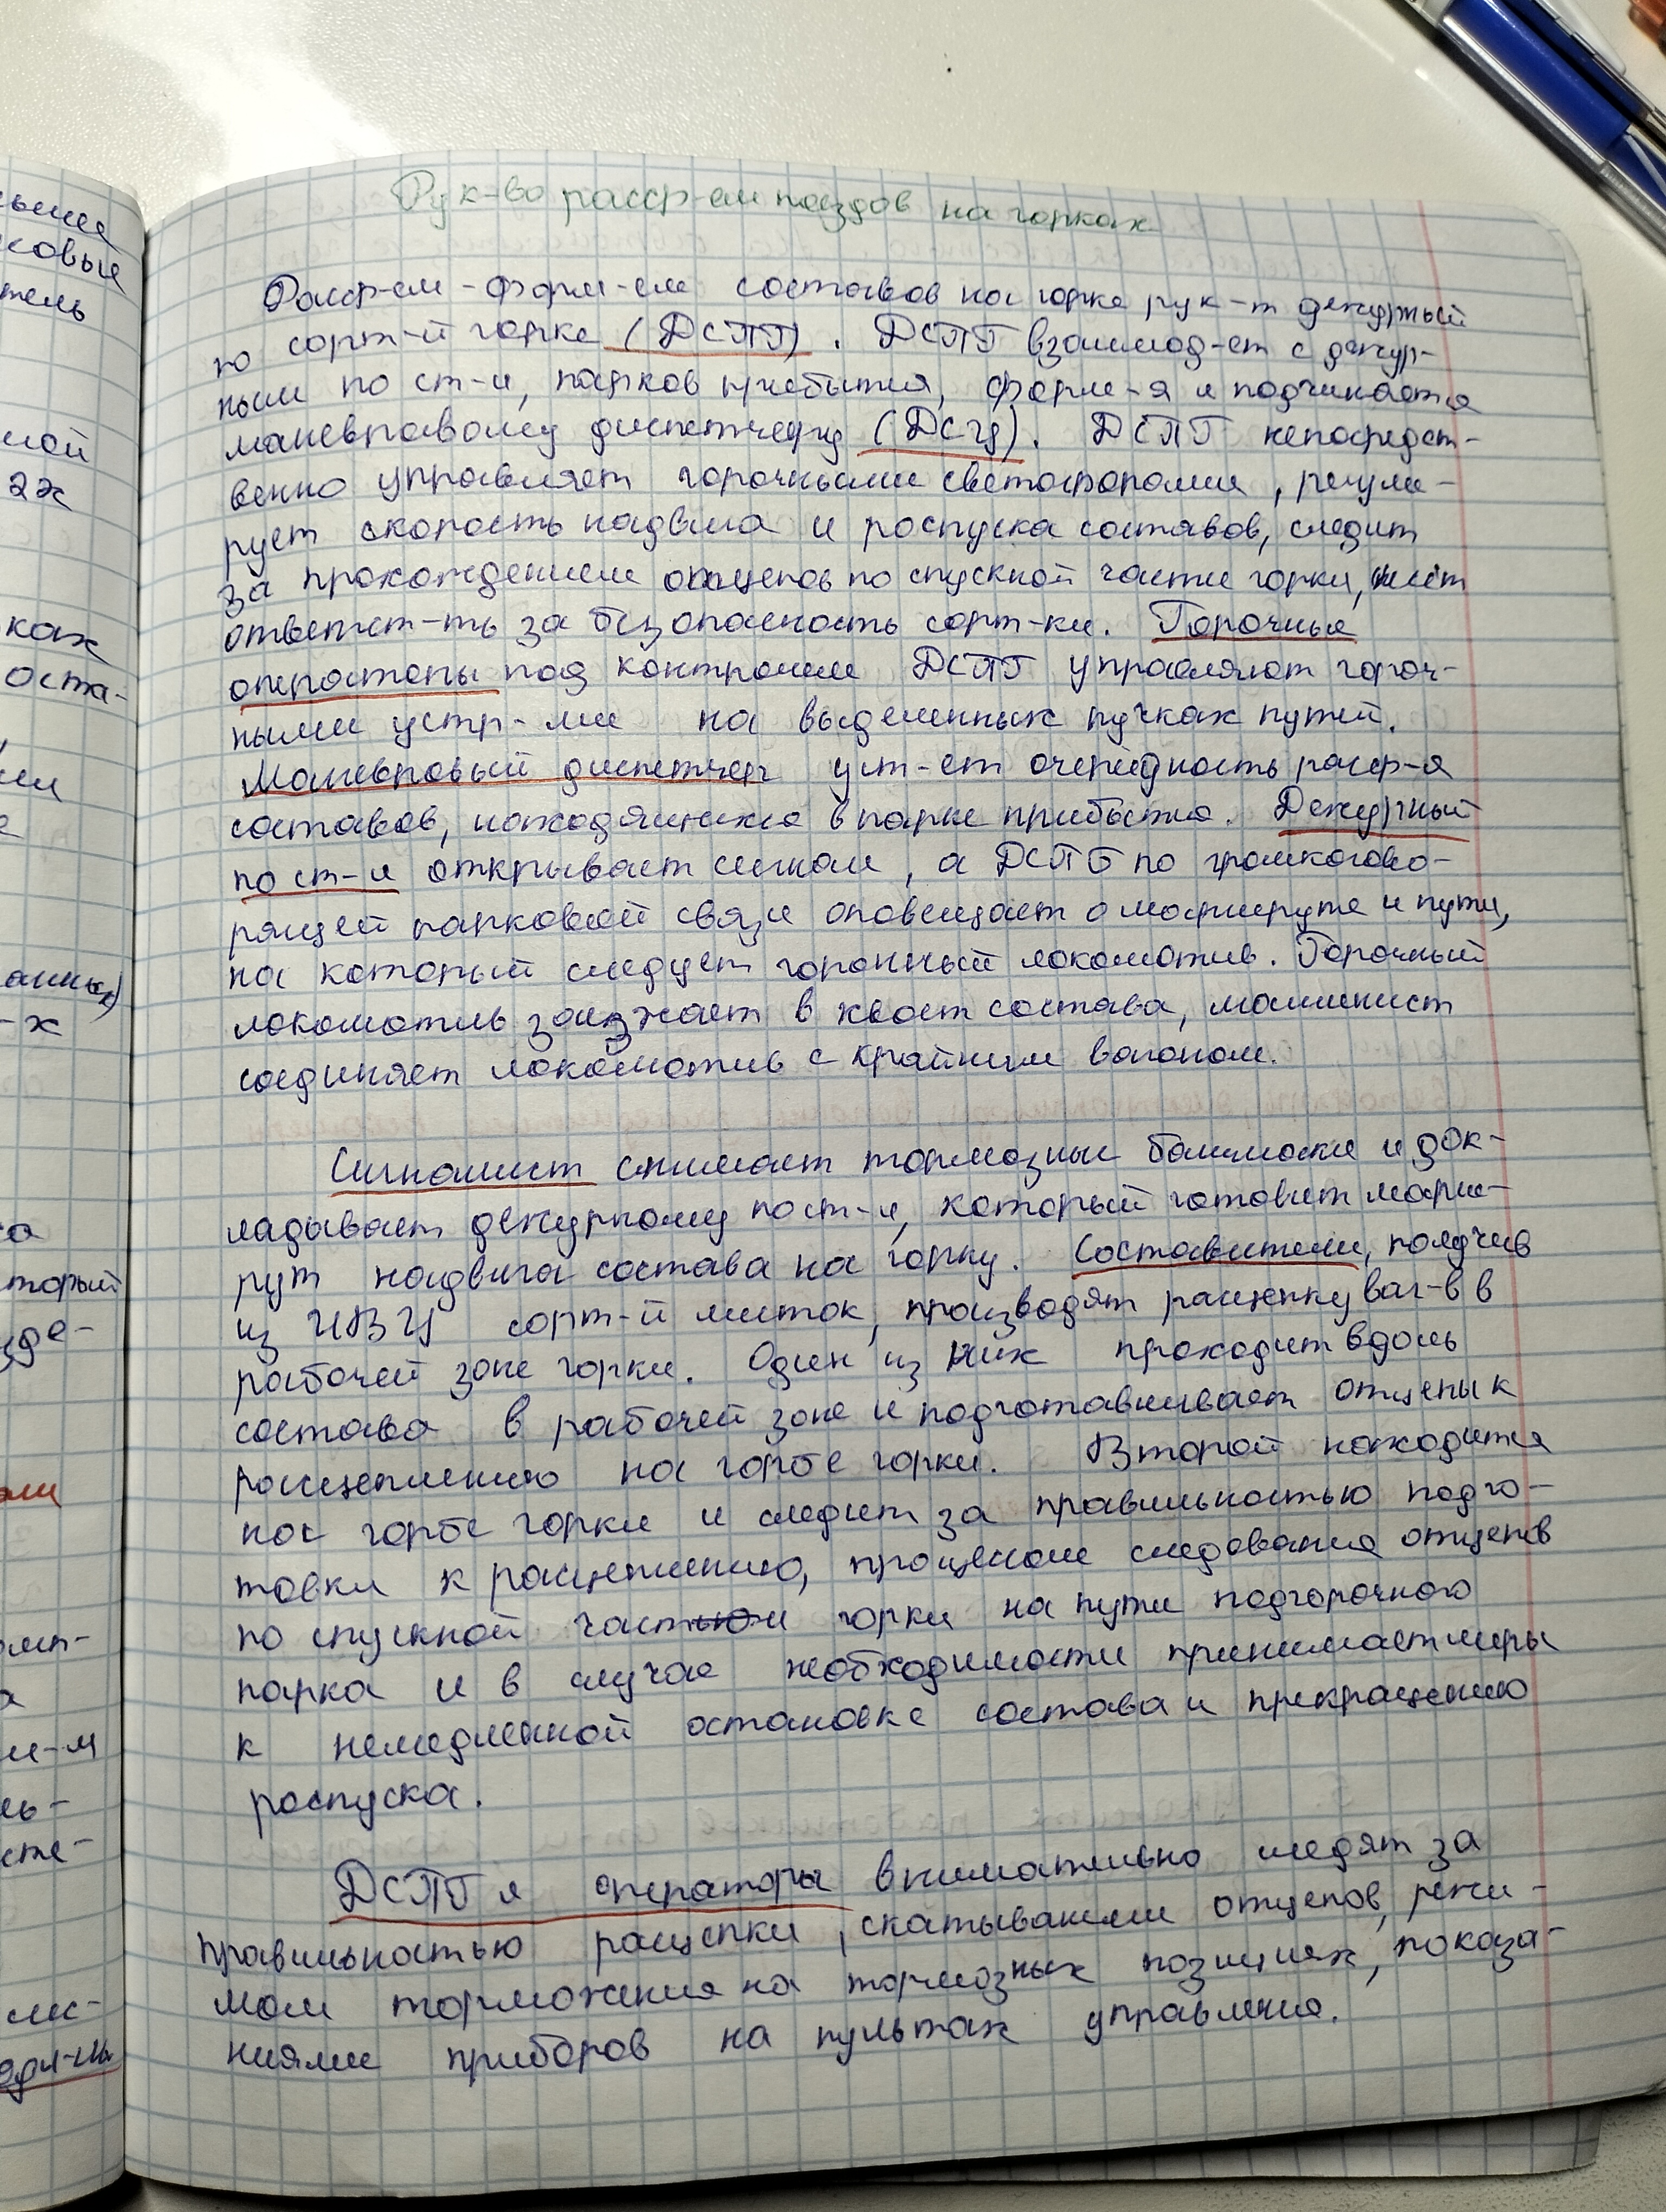 ьные
ковые
тель
мой
2х
ках
оста-
-х
торый
де-
ами
и-м
ль-
сте-
Рук-во расср-ем поездов на горках
Расср-ем-форм-ем составов на горке рук-т дежурный
по сорт-й горке (ДСПГ). ДСПГ взаимод-ет с дежур-
ным по ст-и, парков прибытия, форм-я и подчиняется
маневровому диспетчеру (ДСЦ). ДСПГ непосредст-
венно управляет горочными светофорами, регули-
рует скорость надвига и роспуска составов, следит
за прохождением отцепов по спускной части горки, несёт
ответст-ть за безопасность сорт-ки. Горочные
операторы под контролем ДСПГ управляют гороч-
ными устр-ми на выделенных пучках путей.
Маневровый диспетчер уст-ет очерёдность расф-я
составов, находящихся в парке прибытия. Дежурный
по ст-и открывает сигнал, а ДСПГ по громкогово-
рящей парковой связи оповещает о маршруте и пути,
на который следует горочный локомотив. Горочный
локомотив заезжает в хвост состава, машинист
соединяет локомотив с крайним вагоном.
Сигналист снимает тормозные башмаки и док-
ладывает дежурному по ст-и, который готовит марш-
рут надвига состава на горку. Составители, получив
из ИВЦ сорт-й листок, производят расцепку ваг-в в
рабочей зоне горки. Один из них проходит вдоль
состава в рабочей зоне и подготавливает отцепы к
расцеплению на горбе горки. Второй находится
на горбе горки и следит за правильностью подго-
товки к расцеплению, процессом следования отцепов
по спускной части горки на пути подгорочного
парка и в случае необходимости принимает меры
к немедленной остановке состава и прекращению
роспуска.
ДСПГ и операторы внимательно следят за
правильностью расцепки, скатыванием отцепов, режи-
мом торможения на тормозных позициях, показа-
ниями приборов на пультах управления.